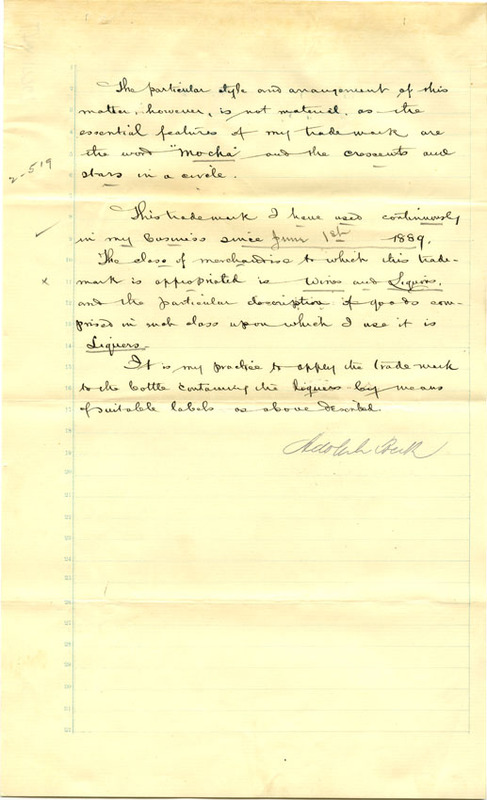 The particular style and arrangement of this
matter, however, is not material, as the
essential features of my trade mark are
the word "Mocha" and the crescents and
stars in a circle.
2-519
This trademark I have used continuously
in my business since June 1st 1889.
The class of merchandise to which this trade-
mark is appropriated is Wines and Liquors,
x
and the particular description of goods com-
prised in such class upon which I use it is
Liquors.
It is my practice to apply the trade mark
to the bottle containing the liquors by means
of suitable labels as above described.
Adolph